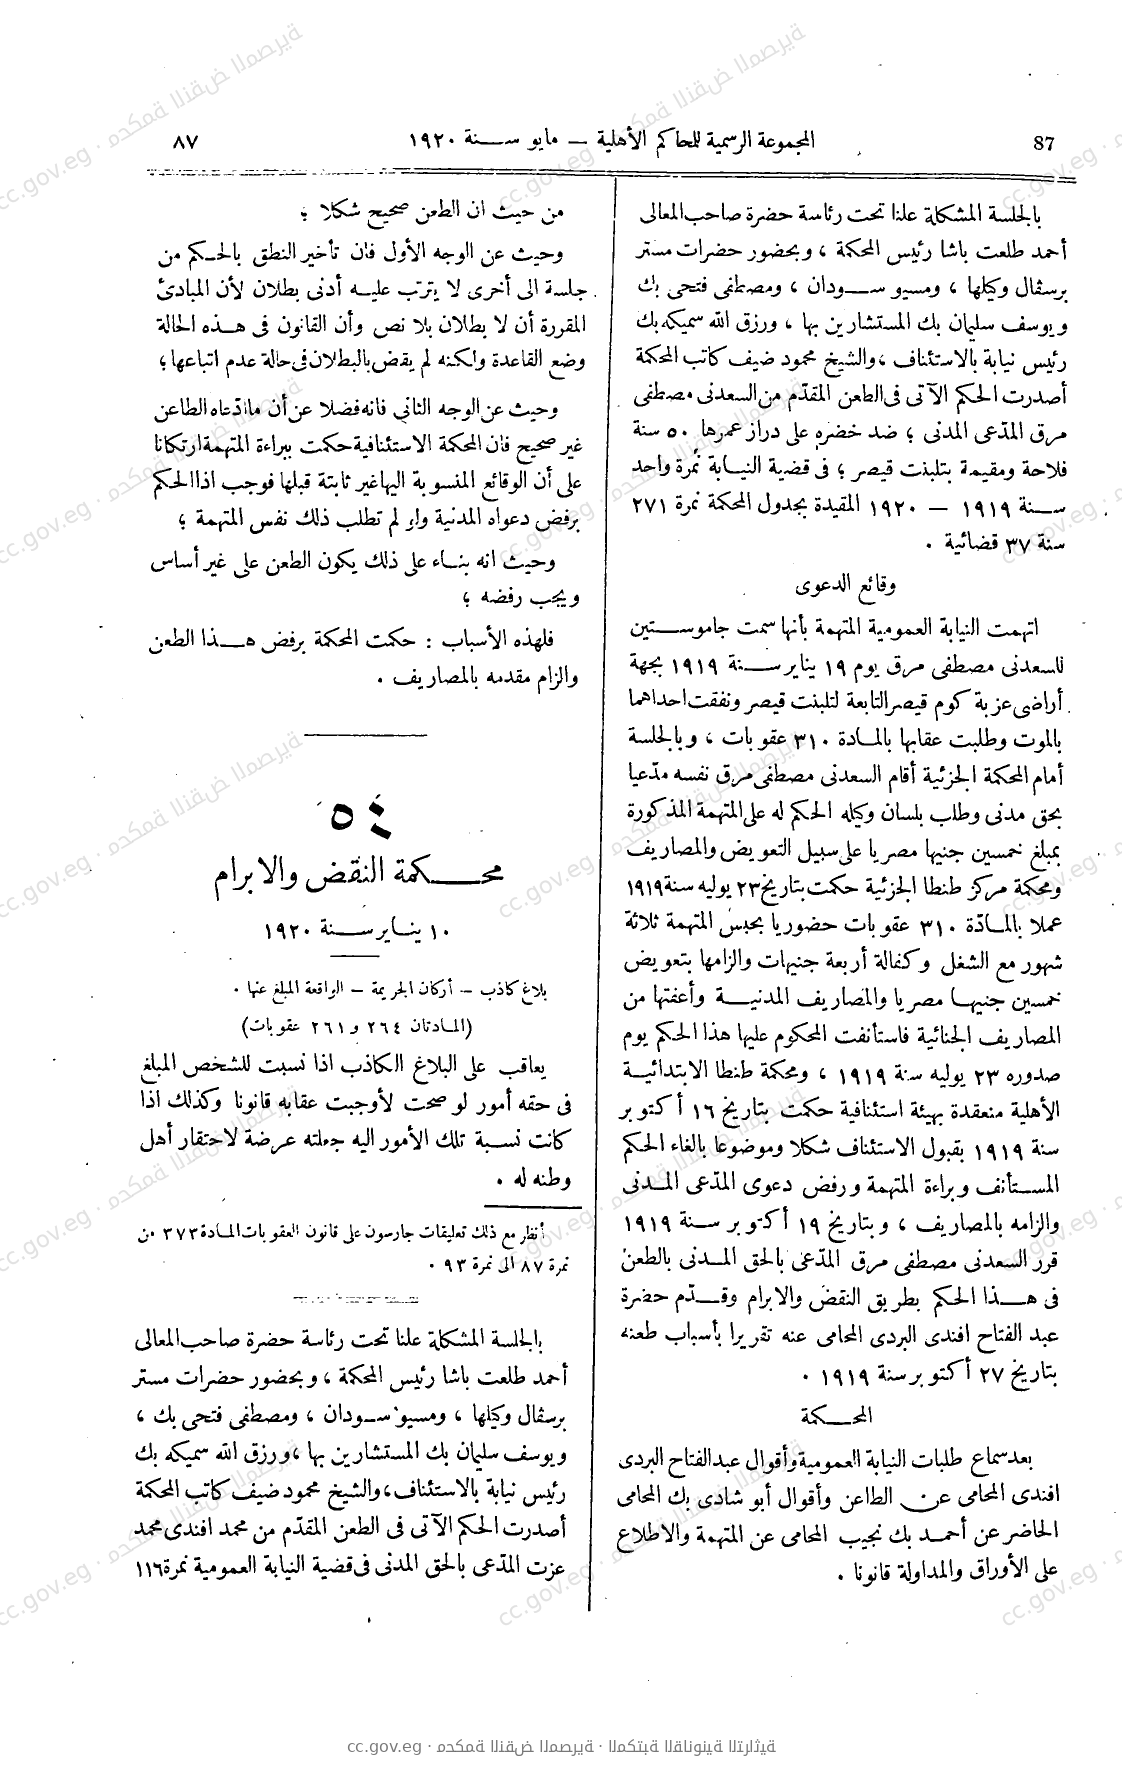 87
المجموعة الرسمية للمحاكم الأهلية — مايو سنة ١٩٢٠
٨٧
بالجلسة المشكلة علنا تحت رئاسة حضرة صاحب المعالى
أحمد طلعت باشا رئيس المحكمة ، وبحضور حضرات مستر
برسڤال وكيلها ، ومسيو سودان ، ومصطفى فتحى بك
ويوسف سليمان بك المستشارين بها ، ورزق الله سميكه بك
رئيس نيابة بالاستئناف ، والشيخ محمود ضيف كاتب المحكمة
أصدرت الحكم الآتى فى الطعن المقدّم من السعدنى مصطفى
مرق المدّعى المدنى ؛ ضد خضره على دراز عمرها ٥٠ سنة
فلاحة ومقيمة بتلبنت قيصر ؛ فى قضية النيابة نمرة واحد
سنة ١٩١٩ — ١٩٢٠ المقيدة بجدول المحكمة نمرة ٢٧١
سنة ٣٧ قضائية .
وقائع الدعوى
اتهمت النيابة العمومية المتهمة بأنها سمت جاموستين
للسعدنى مصطفى مرق يوم ١٩ يناير سنة ١٩١٩ بجهة
أراضى عزبة كوم قيصر التابعة لتلبنت قيصر ونفقت احداهما
بالموت وطلبت عقابها بالمادة ٣١٠ عقوبات ، وبالجلسة
أمام المحكمة الجزئية أقام السعدنى مصطفى مرق نفسه مدّعيا
بحق مدنى وطلب بلسان وكيله الحكم له على المتهمة المذكورة
بمبلغ خمسين جنيها مصريا على سبيل التعويض والمصاريف
ومحكمة مركز طنطا الجزئية حكمت بتاريخ ٢٣ يوليه سنة ١٩١٩
عملا بالمادّة ٣١٠ عقوبات حضوريا بحبس المتهمة ثلاثة
شهور مع الشغل وكفالة أربعة جنيهات والزامها بتعويض
خمسين جنيها مصريا والمصاريف المدنية وأعفتها من
المصاريف الجنائية فاستأنفت المحكوم عليها هذا الحكم يوم
صدوره ٢٣ يوليه سنة ١٩١٩ ، ومحكمة طنطا الابتدائية
الأهلية منعقدة بهيئة استئنافية حكمت بتاريخ ١٦ أكتوبر
سنة ١٩١٩ بقبول الاستئناف شكلا وموضوعا بالغاء الحكم
المستأنف وبراءة المتهمة ورفض دعوى المدّعى المدنى
والزامه بالمصاريف ، وبتاريخ ١٩ أكتوبر سنة ١٩١٩
قرر السعدنى مصطفى مرق المدّعى بالحق المدنى بالطعن
فى هذا الحكم بطريق النقض والابرام وقدّم حضرة
عبد الفتاح افندى البردى المحامى عنه تقريرا بأسباب طعنه
بتاريخ ٢٧ أكتوبر سنة ١٩١٩ .
المحكمة
بعد سماع طلبات النيابة العمومية وأقوال عبد الفتاح البردى
افندى المحامى عن الطاعن وأقوال أبو شادى بك المحامى
الحاضر عن أحمد بك نجيب المحامى عن المتهمة والاطلاع
على الأوراق والمداولة قانونا .
من حيث ان الطعن صحيح شكلا ؛
وحيث عن الوجه الأول فان تأخير النطق بالحكم من
جلسة الى أخرى لا يترتب عليه أدنى بطلان لأن المبادئ
المقررة أن لا بطلان بلا نص وأن القانون فى هذه الحالة
وضع القاعدة ولكنه لم يقض بالبطلان فى حالة عدم اتباعها ؛
وحيث عن الوجه الثانى فانه فضلا عن أن ما ادّعاه الطاعن
غير صحيح فان المحكمة الاستئنافية حكمت ببراءة المتهمة ارتكانا
على أن الوقائع المنسوبة اليها غير ثابتة قبلها فوجب اذا الحكم
برفض دعواه المدنية ولو لم تطلب ذلك نفس المتهمة ؛
وحيث انه بناء على ذلك يكون الطعن على غير أساس
ويجب رفضه ؛
فلهذه الأسباب : حكمت المحكمة برفض هذا الطعن
والزام مقدمه بالمصاريف .
٥٤
محكمة النقض والابرام
١٠ يناير سنة ١٩٢٠
بلاغ كاذب – أركان الجريمة – الواقعة المبلغ عنها .
(المادتان ٢٦٤ و ٢٦١ عقوبات)
يعاقب على البلاغ الكاذب اذا نسبت للشخص المبلغ
فى حقه أمور لو صحت لأوجبت عقابه قانونا وكذلك اذا
كانت نسبة تلك الأمور اليه جعلته عرضة لاحتقار أهل
وطنه له .
أنظر مع ذلك تعليقات جارسون على قانون العقوبات المادة ٣٧٣ من
نمرة ٨٧ الى نمرة ٩٣ .
بالجلسة المشكلة علنا تحت رئاسة حضرة صاحب المعالى
أحمد طلعت باشا رئيس المحكمة ، وبحضور حضرات مستر
برسڤال وكيلها ، ومسيو سودان ، ومصطفى فتحى بك ،
ويوسف سليمان بك المستشارين بها ، ورزق الله سميكه بك
رئيس نيابة بالاستئناف ، والشيخ محمود ضيف كاتب المحكمة
أصدرت الحكم الآتى فى الطعن المقدّم من محمد افندى محمد
عزت المدّعى بالحق المدنى فى قضية النيابة العمومية نمرة ١١٦
cc.gov.eg · محكمة النقض المصرية · المكتبة القانونية التراثية